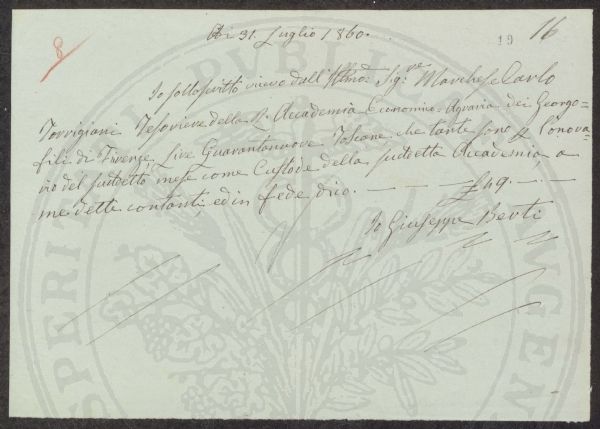 8
19
16
A di 31. Luglio 1860.
Io sottoscritto ricevo dall'Illmo: Sig:re Marchese Carlo
Torrigiani Tesoriere della R. Accademia Economico-Agraria dei Georgo=
fili di Firenze, Lire Quarantanove Toscane che tante sono p l'onora-
rio del suddetto mese come Custode della suddetta Accademia, a
me dette contanti, ed in fede dico. — — — £ 49. — —
Io Giuseppe Berti
PROSPERITATI PUBLICAE AUGENDAE